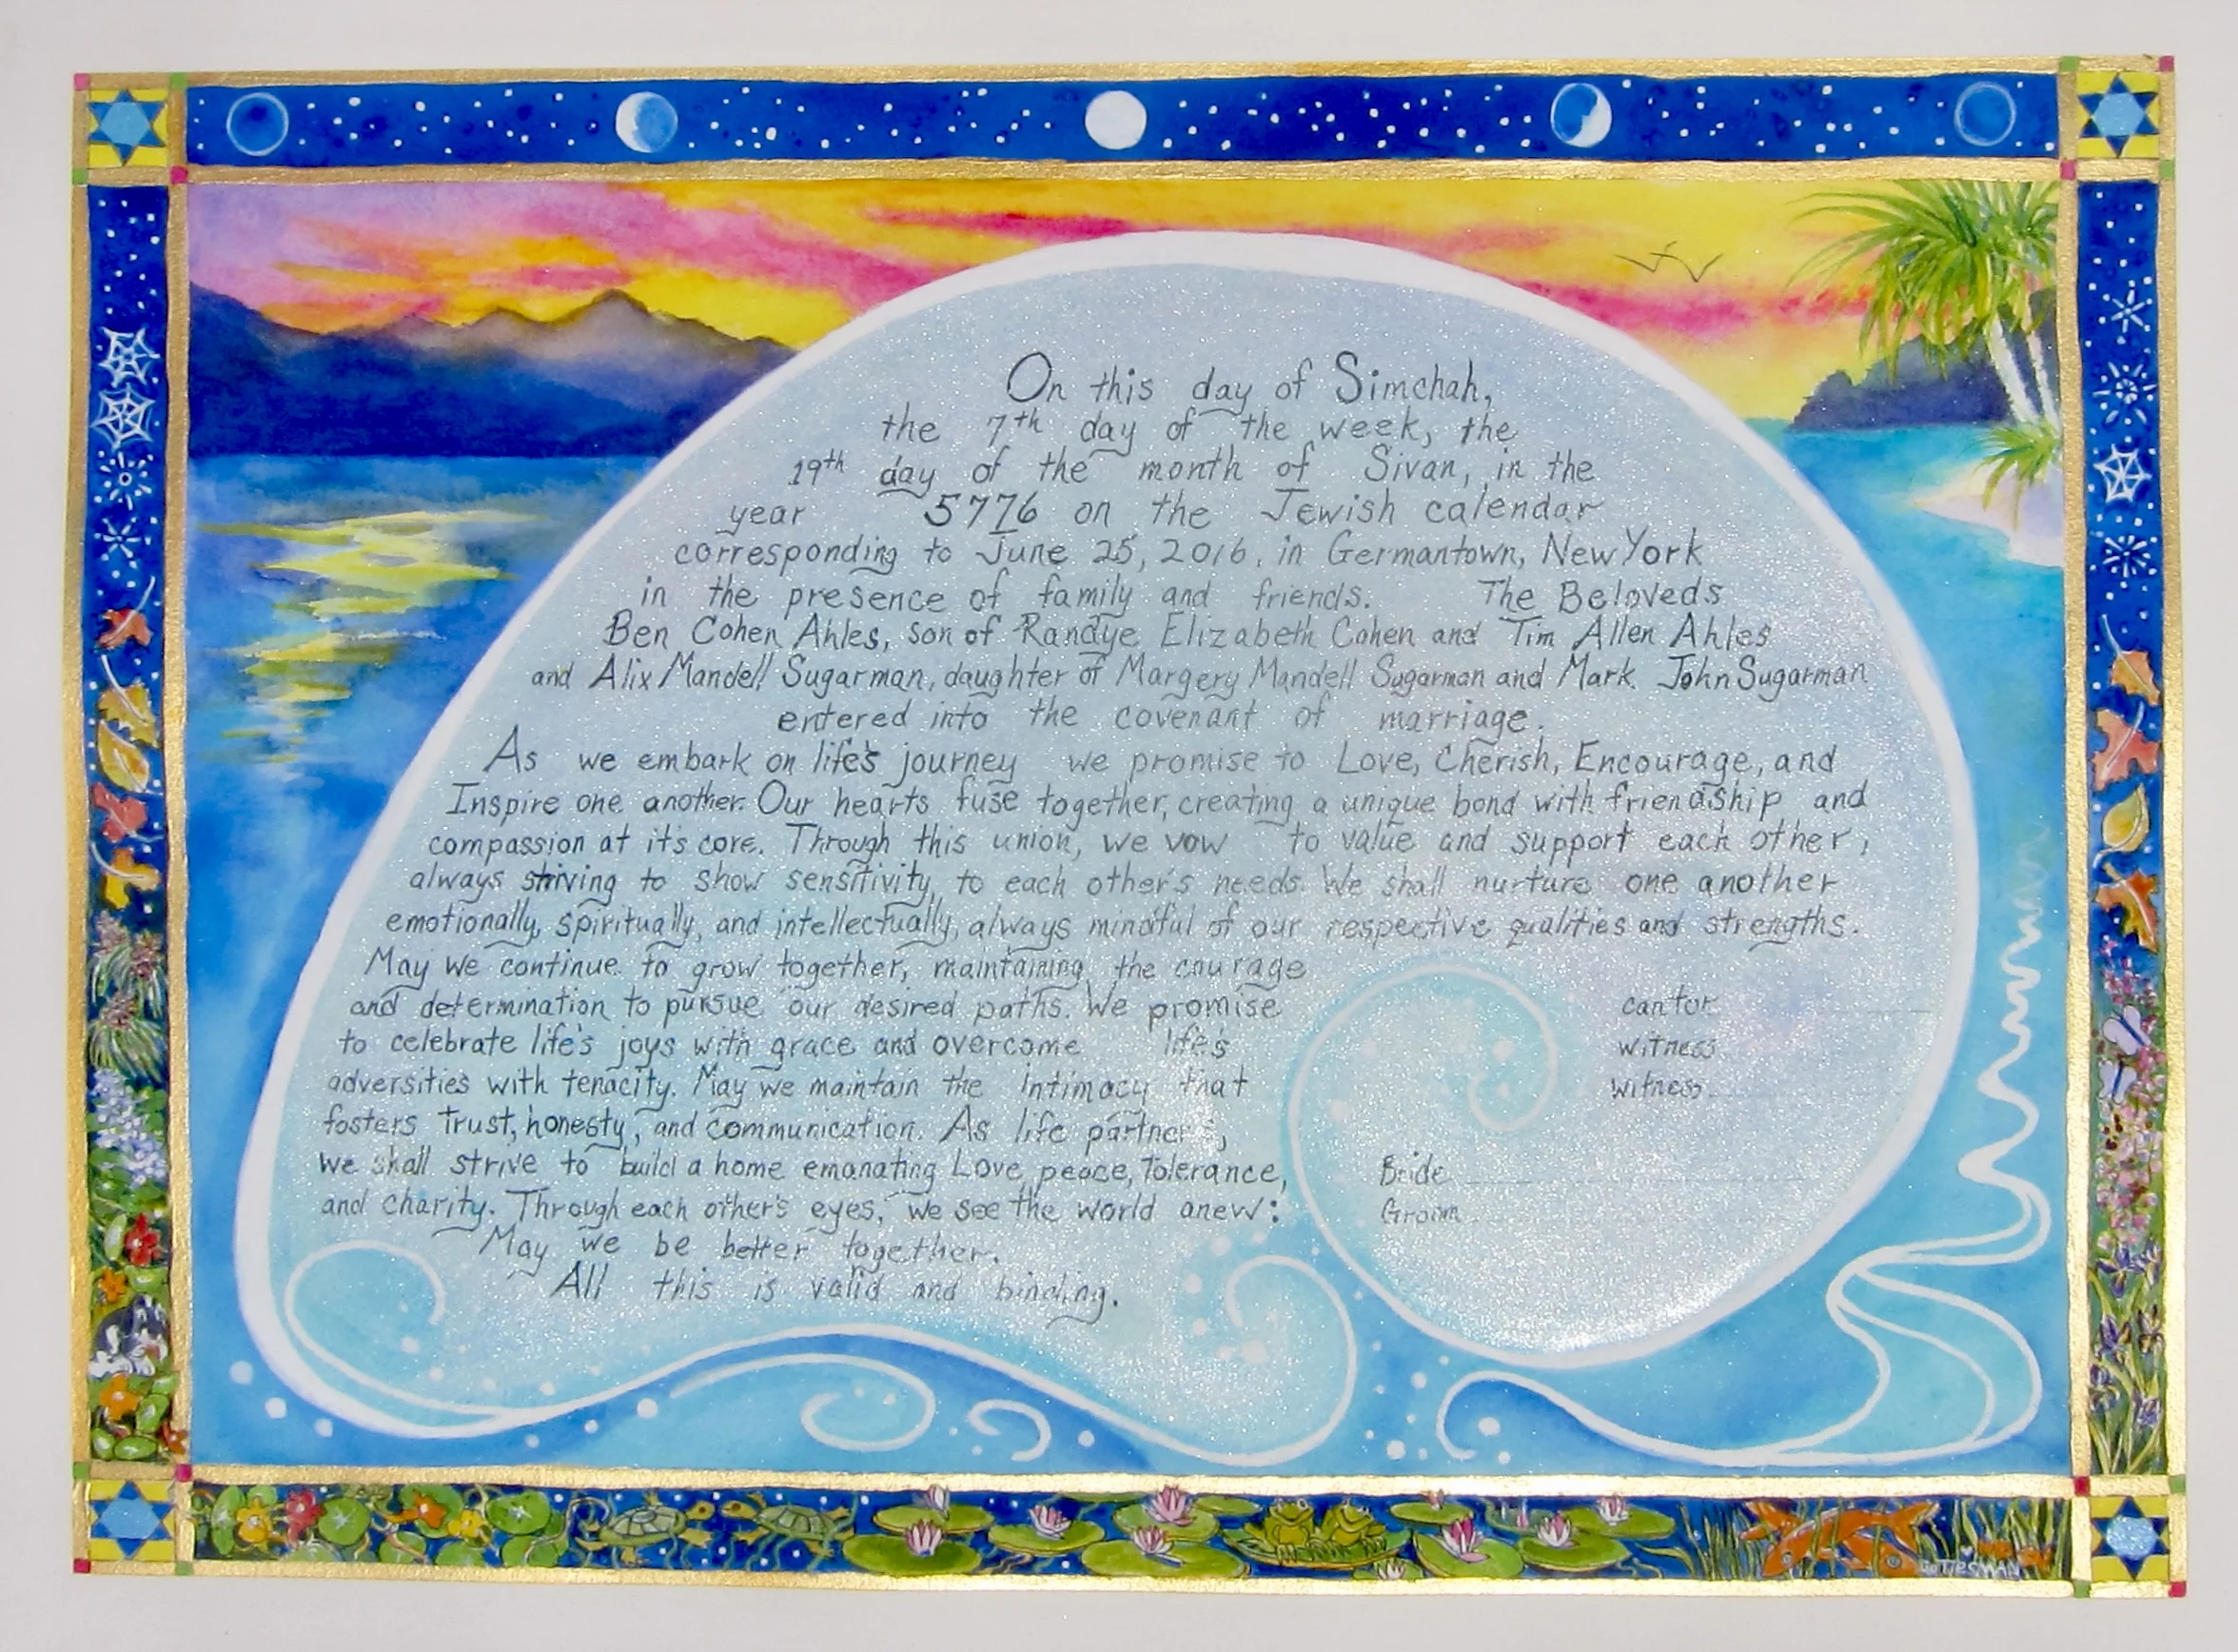 On this day of Simchah,
the 7th day of the week, the
19th day of the month of Sivan, in the
year 5776 on the Jewish calendar
corresponding to June 25, 2016, in Germantown, New York
in the presence of family and friends. The Beloveds
Ben Cohen Ahles, son of Randye Elizabeth Cohen and Tim Allen Ahles
and Alix Mandell Sugarman, daughter of Margery Mandell Sugarman and Mark John Sugarman
entered into the covenant of marriage.
As we embark on life's journey we promise to Love, Cherish, Encourage, and
Inspire one another. Our hearts fuse together, creating a unique bond with friendship and
compassion at it's core. Through this union, we vow to value and support each other,
always striving to show sensitivity to each other's needs. We shall nurture one another
emotionally, spiritually, and intellectually, always mindful of our respective qualities and strengths.
May we continue to grow together, maintaining the courage
and determination to pursue our desired paths. We promise
to celebrate life's joys with grace and overcome life's
adversities with tenacity. May we maintain the intimacy that
fosters trust, honesty, and communication. As life partners,
we shall strive to build a home emanating Love, peace, Tolerance,
and charity. Through each other's eyes, we see the world anew:
May we be better together.
All this is valid and binding.
cantor
witness
witness
Bride
Groom
GOTTESMAN